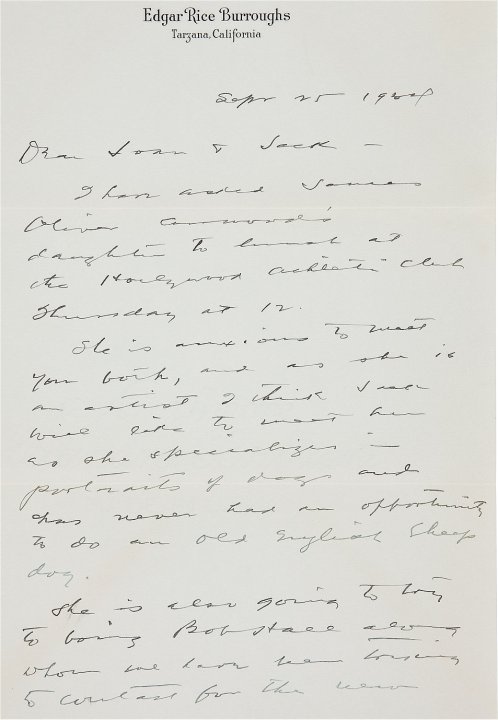 Edgar Rice Burroughs
Tarzana, California
Sept 25 1924
Dear Joan & Jack —
I have asked James
Oliver Curwood's
daughter to lunch at
the Hollywood Athletic Club
Thursday at 12.
She is anxious to meet
you both, and as she is
an artist I think Jack
will like to meet her
as she specializes in
portraits of dogs and
has never had an opportunity
to do an Old English Sheep
dog.
She is also going to try
to bring Bob Hall along
whom we have been trying
to contact for the new